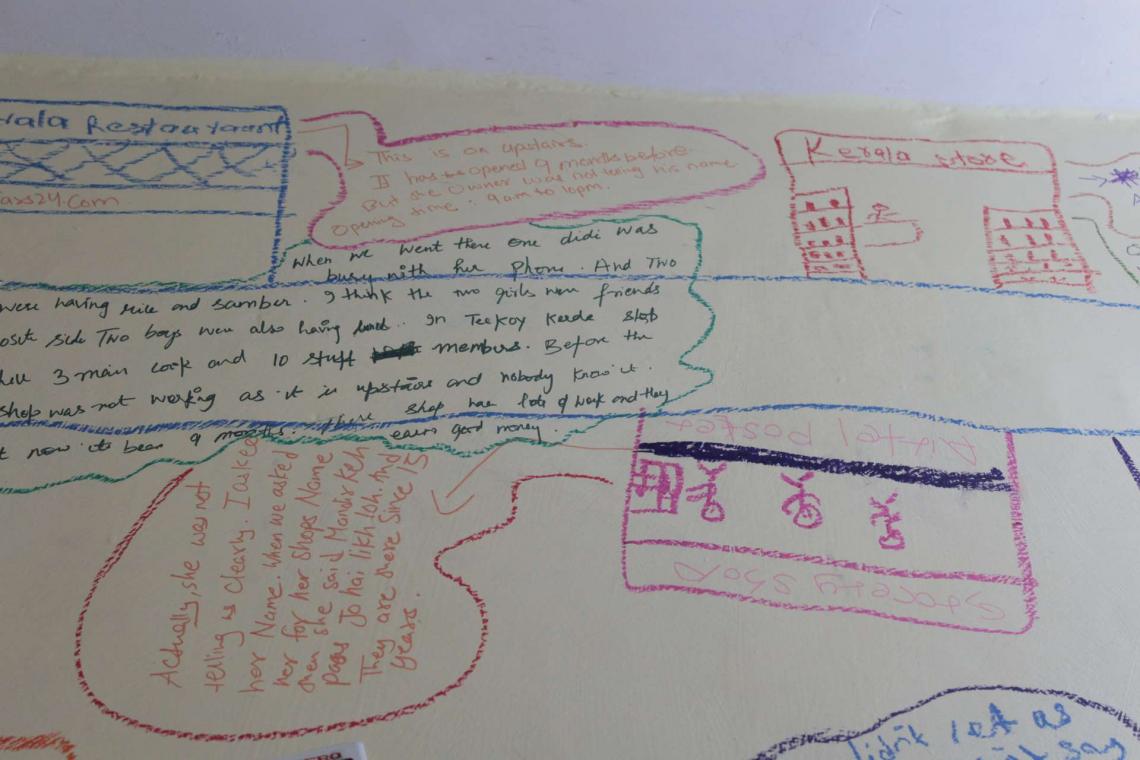 rala Restaurant
ars24.Com
This is on upstairs.
It has opened 9 months before.
But the owner was not teling his name
Opening time : 9am to 10pm.
Kerala store
When we went there one didi was
busy with her phone. And Two
were having rice and samber. I think the two girls were friends
osite side Two boys were also having lunch.. In Teekoy Kerala shop
3 main cook and 10 stuff members. Before the
shop was not working as it is upstairs and nobody know it.
t now its been 9 months. shop have lots of work and they
earn good money.
Airtel poster
Brik
Grocery Shop
Actually, she was not
telling us clearly. I asked
her Name. When we asked
her for her shops Name
then she said Mandir keh
pass Jo hai likh loh. And
They are there Since 15
years.
left as
say